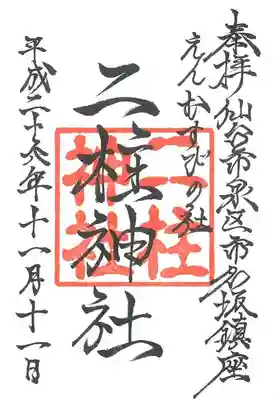 奉拝 仙台市泉区市名坂鎮座
えんむすびの社
二柱神社
二柱神社
平成二十六年十一月十一日